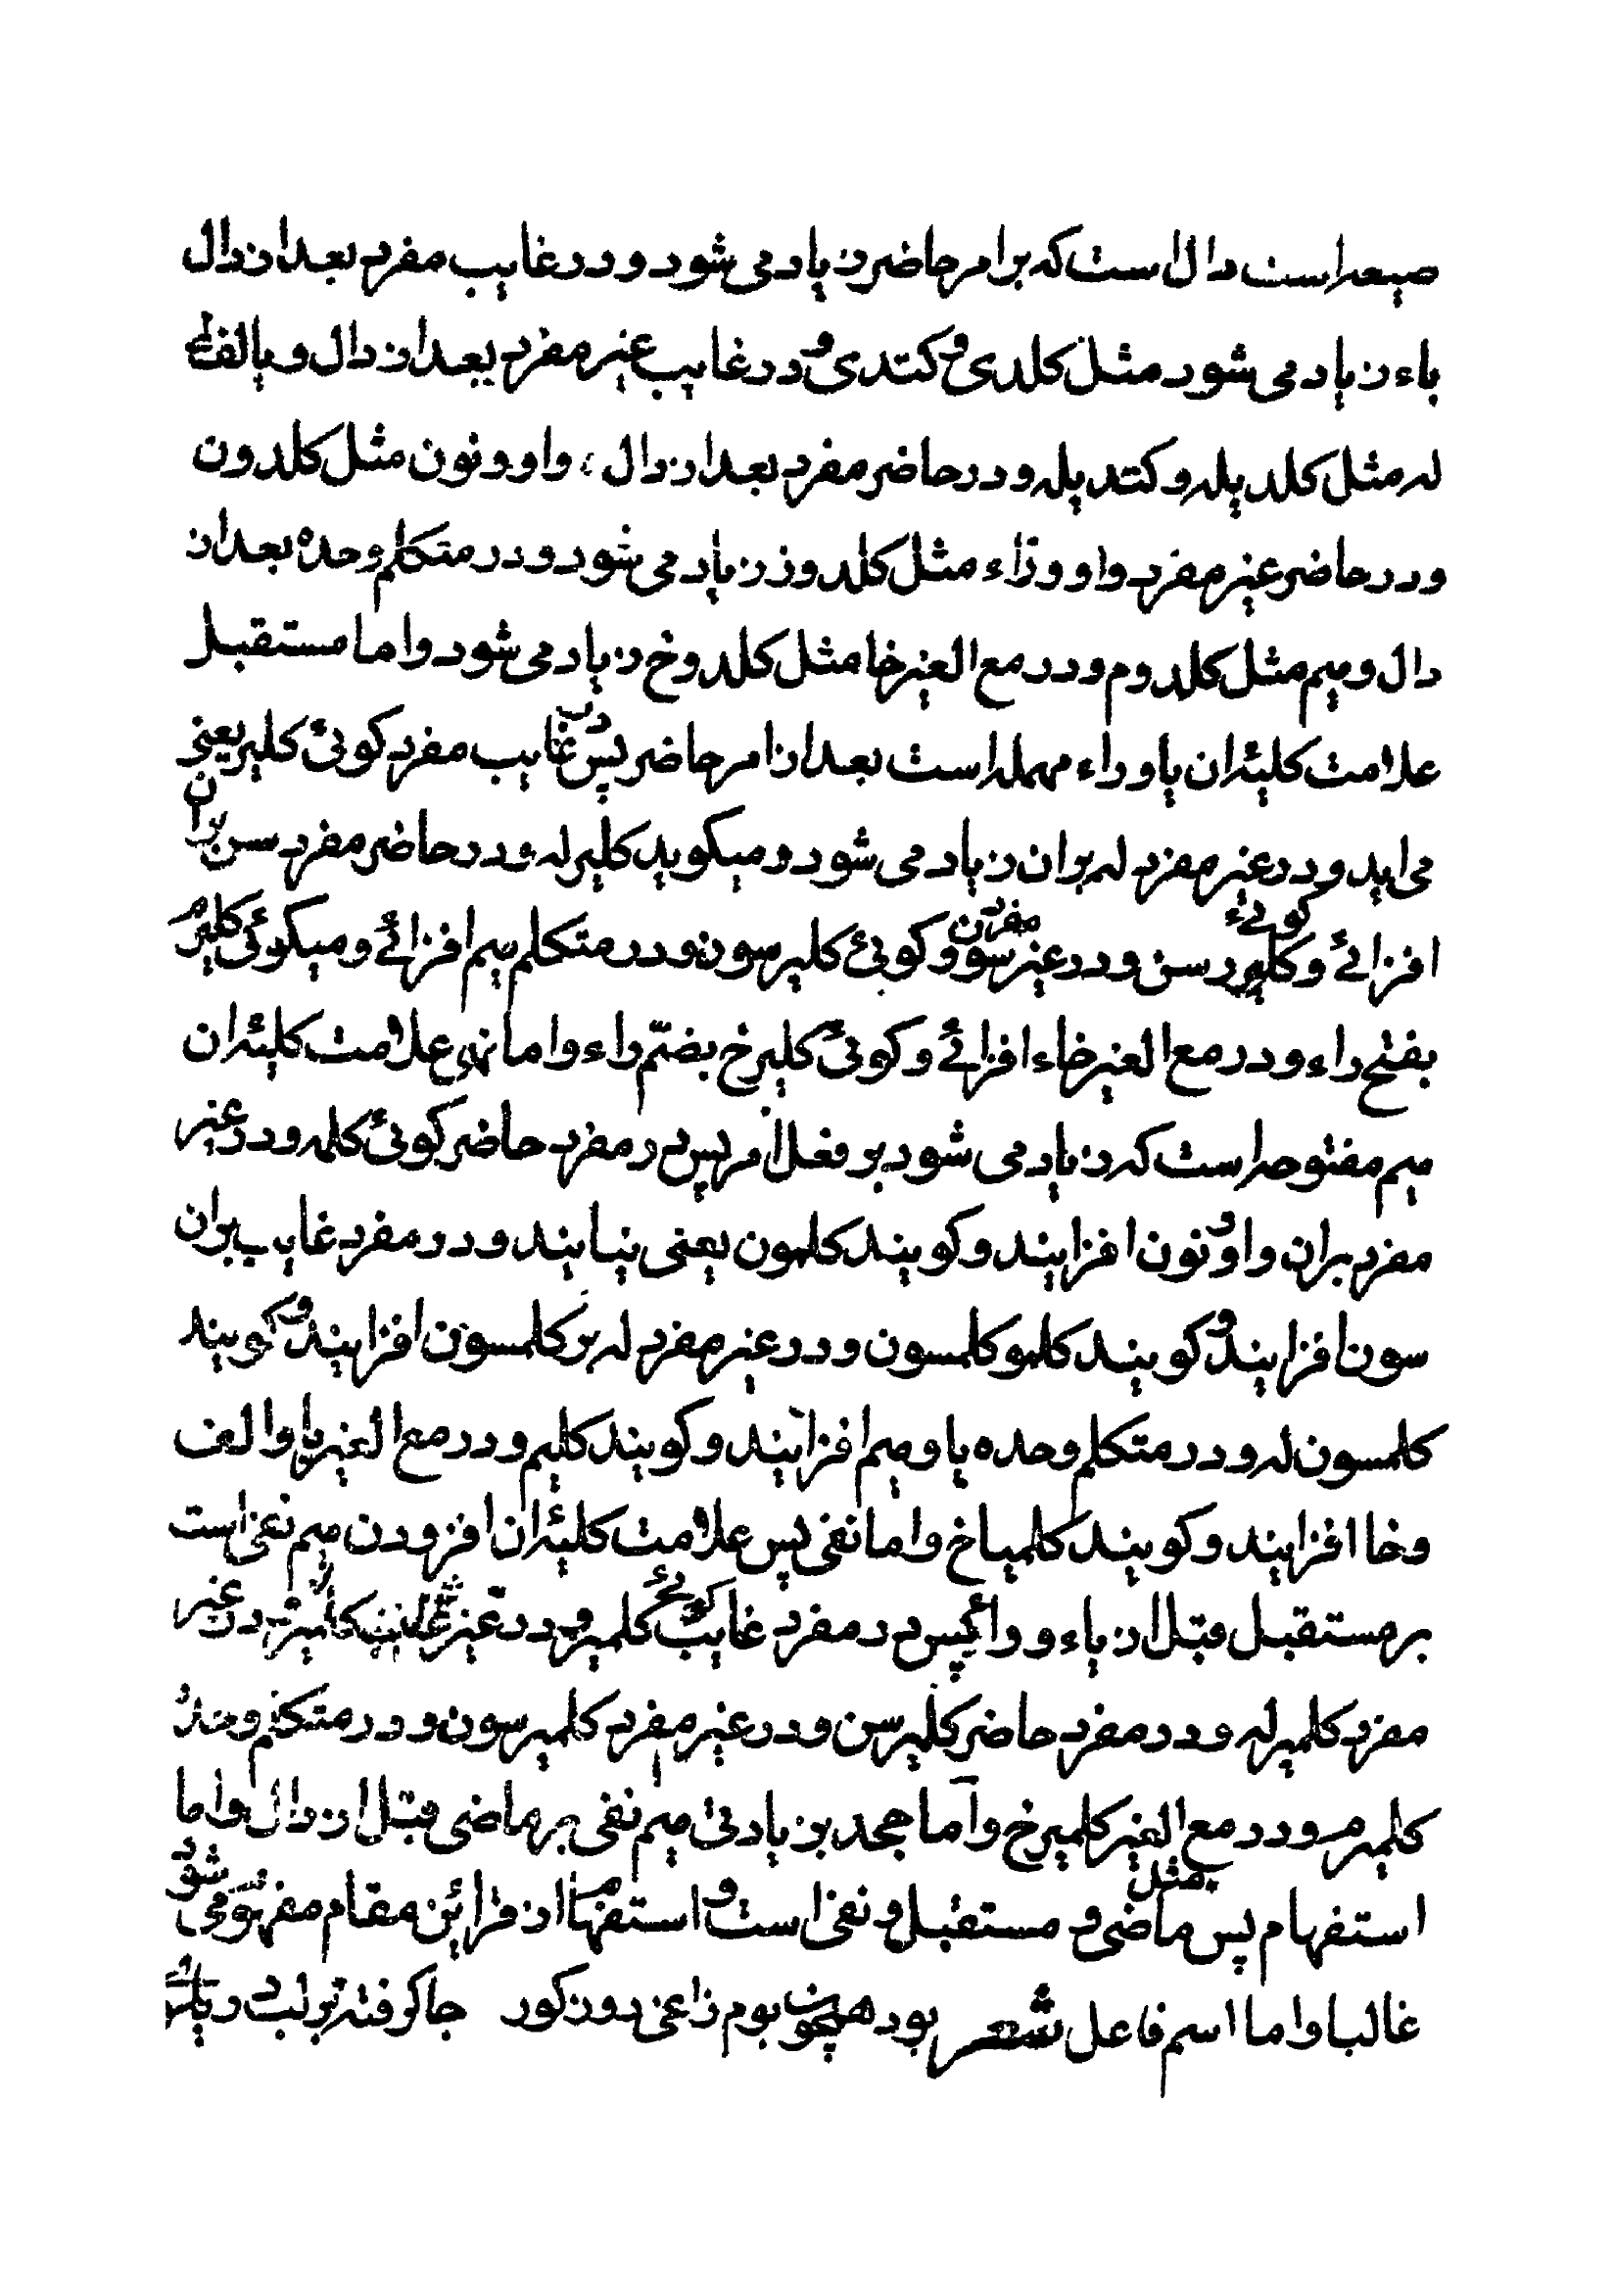 صیغه است دال است که بر امر حاضر زیاد می شود و در غایب مفرد بعد از دال
یاء زیاد می شود مثل کلدی و کتدی و در غایب غیر مفرد بعد از دال و یا لفظ
له مثل کلدیله و کتدیله و در حاضر مفرد بعد از دال، واو و نون مثل کلدون
و در حاضر غیر مفرد واو و زاء مثل کلدوز زیاد می شود و در متکلم وحده بعد از
دال و میم مثل کلدوم و در مع الغیر خا مثل کلدوخ زیاد می شود و اما مستقبل
علامت کلیئه ان یا و راء مهمله است بعد از امر حاضر پس در غایب مفرد کوئی کلیر یعنی
می اید و در غیر مفرد له بران زیاد می شود و میکوید کلیرله و در حاضر مفرد سن بران
افزائے و کوئے کلیر سن و در غیر مفرد ان سون و کوئی کلیرسون و در متکلم میم افزائے و میکوئی کلیرم
بفتح راء و در مع الغیر خاء افزائے و کوئی کلیرخ بضمّ راء و اما نهی علامت کلیئه ان
میم مفتوحه است که زیاد می شود بر فعل امر پس در مفرد حاضر کوئی کلمه و در غیر
مفرد بران واو و نون افزایند و کویند کلمون یعنی نیایند و در مفرد غایب بران
سون افزایند و کویند کلمو کلمسون و در غیر مفرد له بر کلمسون افزایند و کویند
کلمسون له و در متکلم وحده یا و میم افزایند و کویند کلیم و در مع الغیر یا و الف
و خا افزایند و کویند کلمیاخ و اما نفی پس علامت کلیئه ان افزودن میم نفی است
بر مستقبل قبل از یاء و راء پس در مفرد غایب کوئے کلمیر و در غیر
مفرد کلمیرله و در مفرد حاضر کلمیرسن و در غیر مفرد کلمیرسون و در متکلم وحده
کلمیرم و در مع الغیر کلمیرخ و اما جحد بزیادتی میم نفی بر ماضی قبل از دال و اما
استفهام پس مثل ماضی و مستقبل و نفی است و استفهام از قرائن مقام مفهوم می شود
غالبا و اما اسم فاعل شعر بود همچون بوم زاغی روزکور جا کرفته بر لب